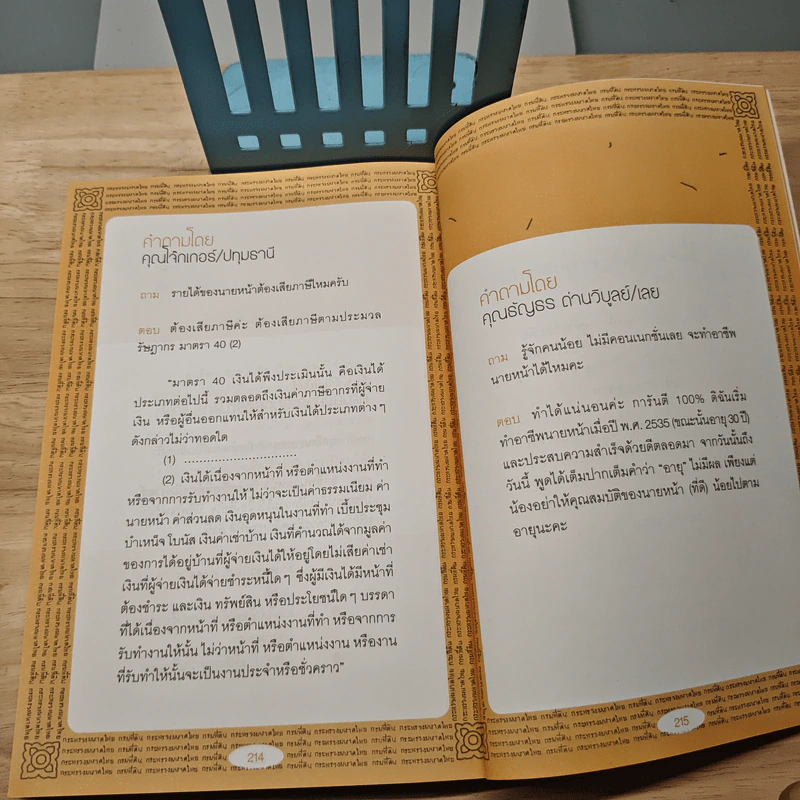 คำถามโดย
คุณโจ๊กเกอร์/ปทุมธานี
ถาม รายได้ของนายหน้าต้องเสียภาษีไหมครับ
ตอบ ต้องเสียภาษีค่ะ ต้องเสียภาษีตามประมวล
รัษฎากร มาตรา 40 (2)
"มาตรา 40 เงินได้พึงประเมินนั้น คือเงินได้
ประเภทต่อไปนี้ รวมตลอดถึงเงินค่าภาษีอากรที่ผู้จ่าย
เงิน หรือผู้อื่นออกแทนให้สำหรับเงินได้ประเภทต่าง ๆ
ดังกล่าวไม่ว่าทอดใด
(1) ............................
(2) เงินได้เนื่องจากหน้าที่ หรือตำแหน่งงานที่ทำ
หรือจากการรับทำงานให้ ไม่ว่าจะเป็นค่าธรรมเนียม ค่า
นายหน้า ค่าส่วนลด เงินอุดหนุนในงานที่ทำ เบี้ยประชุม
บำเหน็จ โบนัส เงินค่าเช่าบ้าน เงินที่คำนวณได้จากมูลค่า
ของการได้อยู่บ้านที่ผู้จ่ายเงินได้ให้อยู่โดยไม่เสียค่าเช่า
เงินที่ผู้จ่ายเงินได้จ่ายชำระหนี้ใด ๆ ซึ่งผู้มีเงินได้มีหน้าที่
ต้องชำระ และเงิน ทรัพย์สิน หรือประโยชน์ใด ๆ บรรดา
ที่ได้เนื่องจากหน้าที่ หรือตำแหน่งงานที่ทำ หรือจากการ
รับทำงานให้นั้น ไม่ว่าหน้าที่ หรือตำแหน่งงาน หรืองาน
ที่รับทำให้นั้นจะเป็นงานประจำหรือชั่วคราว"
214
คำถามโดย
คุณธัญธร ด่านวิบูลย์/เลย
ถาม รู้จักคนน้อย ไม่มีคอนเนกชั่นเลย จะทำอาชีพ
นายหน้าได้ไหมคะ
ตอบ ทำได้แน่นอนค่ะ การันตี 100% ดิฉันเริ่ม
ทำอาชีพนายหน้าเมื่อปี พ.ศ. 2535 (ขณะนั้นอายุ 30 ปี)
และประสบความสำเร็จด้วยดีตลอดมา จากวันนั้นถึง
วันนี้ พูดได้เต็มปากเต็มคำว่า "อายุ" ไม่มีผล เพียงแต่
น้องอย่าให้คุณสมบัติของนายหน้า (ที่ดี) น้อยไปตาม
อายุนะคะ
215